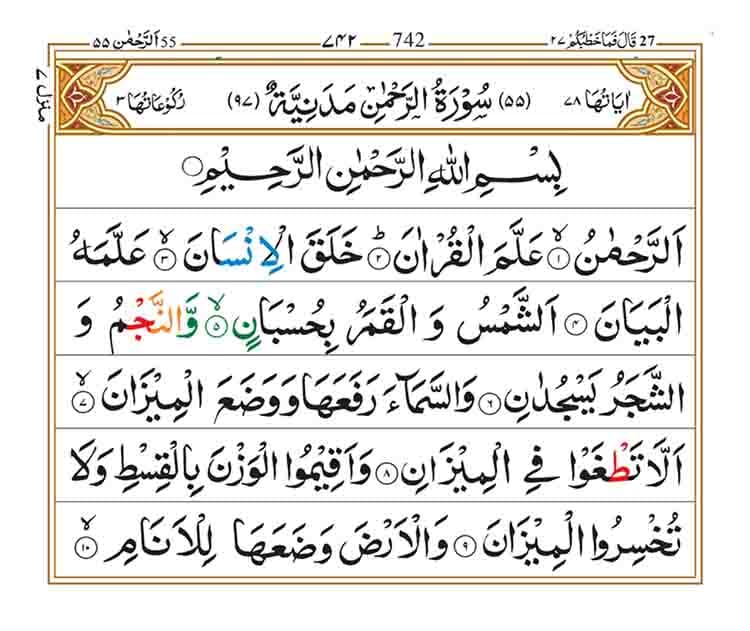 27 قَالَ فَمَا خَطْبُكُمْ ٢٧ 742 ٧٤٢ 55 اَلرَّحْمٰن ٥٥
منزل ٧
اٰیَاتُهَا ٧٨ (٥٥) سُوْرَةُ الرَّحْمٰنِ مَدَنِيَّةٌ (٩٧) رُكُوْعَاتُهَا ٣
بِسْمِ اللهِ الرَّحْمٰنِ الرَّحِيْمِ
اَلرَّحْمٰنُ ۙ١ عَلَّمَ الْقُرْاٰنَ ؕ٢ خَلَقَ الْاِنْسَانَ ۙ٣ عَلَّمَهُ
الْبَيَانَ ٤ اَلشَّمْسُ وَ الْقَمَرُ بِحُسْبَانٍ ۙ٥ وَّالنَّجْمُ وَ
الشَّجَرُ يَسْجُدٰنِ ٦ وَالسَّمَآءَ رَفَعَهَا وَوَضَعَ الْمِيْزَانَ ۙ٧
اَلَّا تَطْغَوْا فِي الْمِيْزَانِ ٨ وَاَقِيْمُوا الْوَزْنَ بِالْقِسْطِ وَلَا
تُخْسِرُوا الْمِيْزَانَ ٩ وَالْاَرْضَ وَضَعَهَا لِلْاَنَامِ ۙ١٠